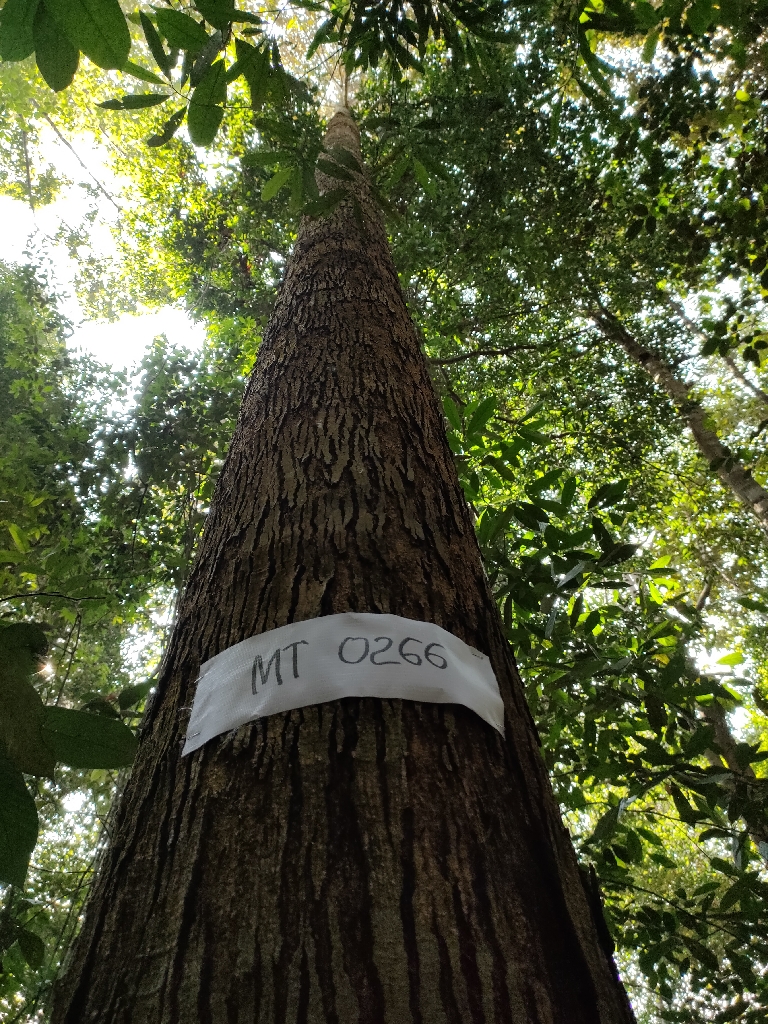 MT 0266